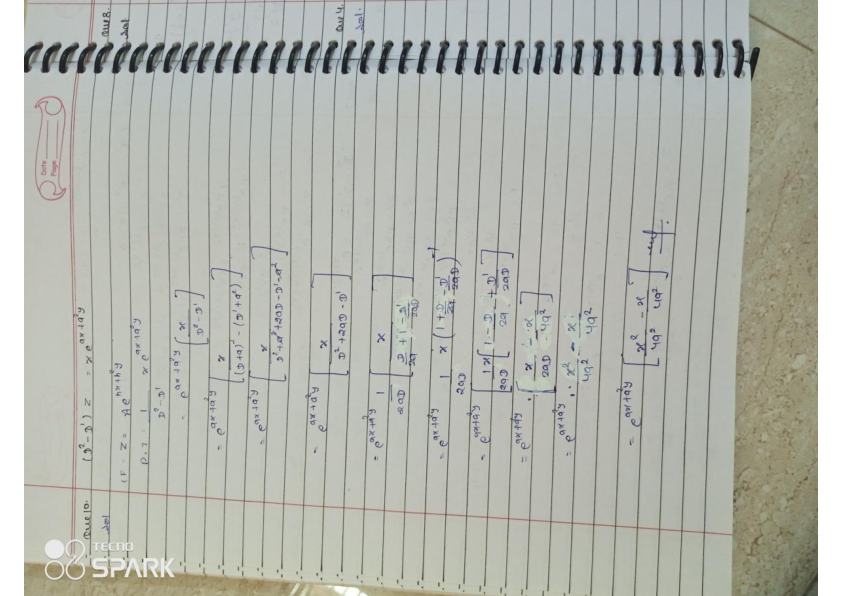 Date
Page
Que 10. (D² - D') Z = x e^{ax+a²y}
Sol
CF = Z = A e^{hx+h²y}
P.I = 1/(D² - D') x e^{ax+a²y}
= e^{ax+a²y} [x/(D² - D')]
= e^{ax+a²y} [x/((D+a)² - (D'+a²))]
= e^{ax+a²y} [x/(D²+a²+2aD - D' - a²)]
= e^{ax+a²y} [x/(D² + 2aD - D')]
= e^{ax+a²y} 1/2aD [x/(D/2a + 1 - D'/2aD)]
= e^{ax+a²y} 1/2aD x (1 + D/2a - D'/2aD)^{-1}
= e^{ax+a²y} [1/2aD x [1 - D/2a + D'/2aD]]
= e^{ax+a²y} · [x/2aD - x/4a²]
= e^{ax+a²y} · x²/4a² - x/4a²
= e^{ax+a²y} [x²/4a² - x/4a²]
Que 8.
Sol
Que 4.
Sol.
TECNO
SPARK